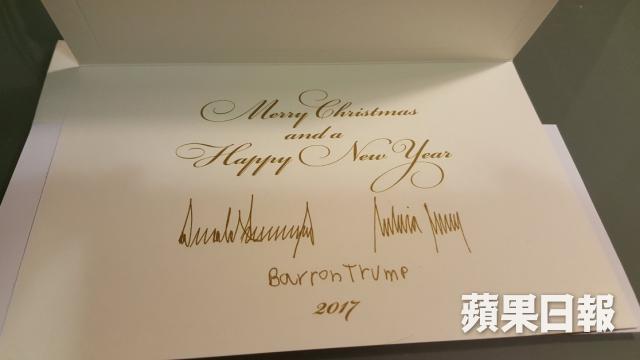 Merry Christmas
and a
Happy New Year
Donald Trump
Barron Trump
2017
蘋果日報